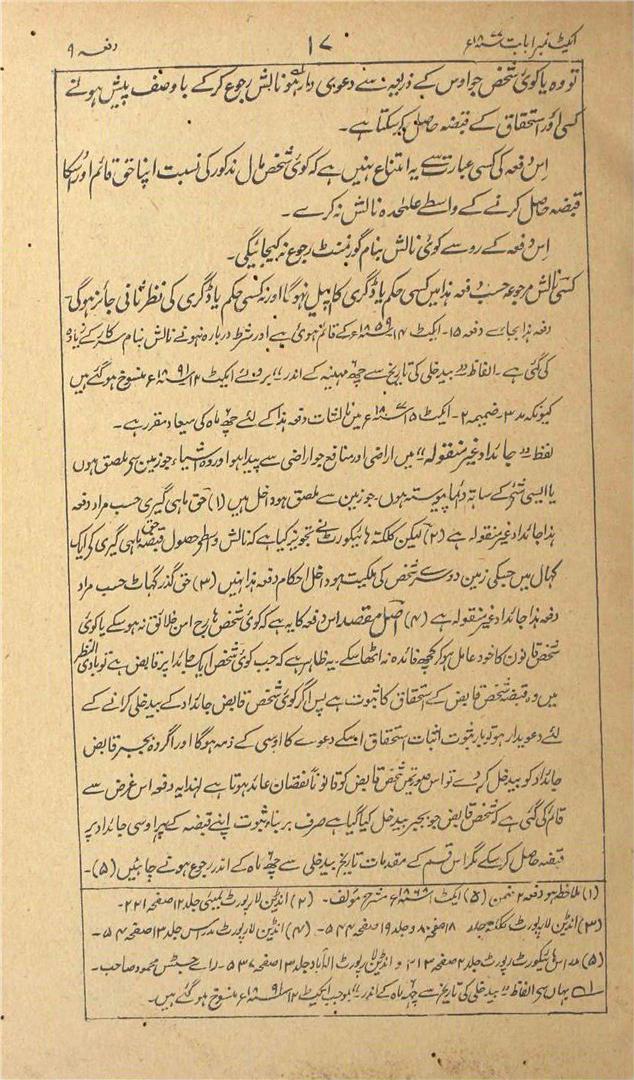 ایکٹ نمبر ۱ بابت ۱۸۷۷ء ۱۷ دفعہ ۹
تو وہ یا کوئی شخص جو اوس کے ذریعہ سے دعوی دار ہو نالش رجوع کر کے باوصف پیش ہونے
کسی اور استحقاق کے قبضہ حاصل کر سکتا ہے۔
اِس دفعہ کی کسی عبارت سے یہ امتناع نہیں ہے کہ کوئی شخص مال مذکور کی نسبت اپنا حق قائم اور اوسکا
قبضہ حاصل کرنے کے واسطے علٰحدہ نالش نہ کرے۔
اِس دفعہ کے روسے کوئی نالش بنام گورنمنٹ رجوع نہ کیجائیگی۔
کسی نالش مرجوعہ حسب دفعہ ہذا میں کسی حکم یا ڈگری کا اپیل نہوگا اور نہ کسی حکم یا ڈگری کی نظر ثانی جائز ہوگی۔
دفعہ ہذا بجائے دفعہ ۱۵۔ ایکٹ ۱۴ ۱۸۵۹ء کے قائم ہوئی ہے اور شرط دربارہ نہونے نالش بنام سرکار کے زیادہ
کی گئی ہے۔ الفاظ "بیدخلی کی تاریخ سے چھ مہینہ کے اندر" بروئے ایکٹ ۱۲ ۱۸۹۱ء منسوخ ہو گئے ہیں
کیونکہ مد ۳۔ ضمیمہ ۲۔ ایکٹ ۱۵ ۱۸۷۷ء میں نالشات دفعہ ہذا کے لئے چھ ماہ کی میعاد مقرر ہے۔
لفظ "جائداد غیر منقولہ" میں اراضی اور منافع جو اراضی سے پیدا ہو اور وہ اشیاء جو زمین سے ملصق ہوں
یا ایسی شئے کے ساتھ دائما پیوستہ ہوں۔ جو زمین سے ملصق ہو داخل ہیں (۱) حق ماہی گیری حسب مراد دفعہ
ہذا جائداد غیر منقولہ ہے (۲) لیکن کلکتہ ہائیکورٹ نے تجویز کیا ہے کہ نالش واسطے حصول قبضہ حق ماہی گیری کو ایک
کہال میں جسکی زمین دوسرے شخص کی ملکیت ہو داخل احکام دفعہ ہذا نہیں (۳) حق گذر گہاٹ حسب مراد
دفعہ ہذا جائداد غیر منقولہ ہے (۴) اصل مقصد اس دفعہ کا یہ ہے کہ کوئی شخص خارج اس خلائق نہ ہو سکے یا کوئی
شخص قانون کا خود عامل ہو کر کچھ فائدہ نہ اٹھا سکے۔ یہ ظاہر ہے کہ جب کوئی شخص ایک جائداد پر قابض ہے تو بادی النظر
میں وہ قبضہ شخص قابض کے استحقاق کا ثبوت ہے پس اگر کوئی شخص قابض جائداد کے بیدخلی کرانے کے
لئے دعویدار ہو تو بار ثبوت اثبات استحقاق اپنے دعوے کا اوسی کے ذمہ ہوگا اور اگر وہ بجبر قابض
جائداد کو بیدخل کر دے تو اس صورتمیں شخص قابض کو قانوناً نقصان عائد ہوتا ہے لہٰذا یہ دفعہ اس غرض سے
قائم کی گئی ہے کہ شخص قابض جو بجبر بیدخل کیا گیا ہے صرف بر بناء ثبوت اپنے قبضہ کے پہر اوسی جائداد پر
قبضہ حاصل کر سکے مگر اس قسم کے مقدمات تاریخ بیدخلی سے چھ ماہ کے اندر رجوع ہونے چاہئیں (۵)۔
(۱) ملاحظہ ہو دفعہ ۲ ضمن (۵) ایکٹ ۱۸۶۸ء مشرح مؤلف۔ (۲) انڈین لارپورٹ بمبئی جلد ۱۲ صفحہ ۲۲۱۔
(۳) انڈین لارپورٹ کلکتہ جلد ۱۸ صفحہ ۸۰ و جلد ۱۹ صفحہ ۵۴۴۔ (۴) انڈین لارپورٹ مدراس جلد ۱۳ صفحہ ۵۴۔
(۵) مدراس ہائیکورٹ رپورٹ جلد ۲ صفحہ ۳۱۳ و انڈین لارپورٹ الہ آباد جلد ۱۳ صفحہ ۵۳۷۔ رائے جسٹس محمود صاحب۔
یہاں سے الفاظ "بیدخلی کی تاریخ سے چھ ماہ کے اندر" بموجب ایکٹ ۱۲ ۱۸۹۱ء منسوخ ہو گئے ہیں۔